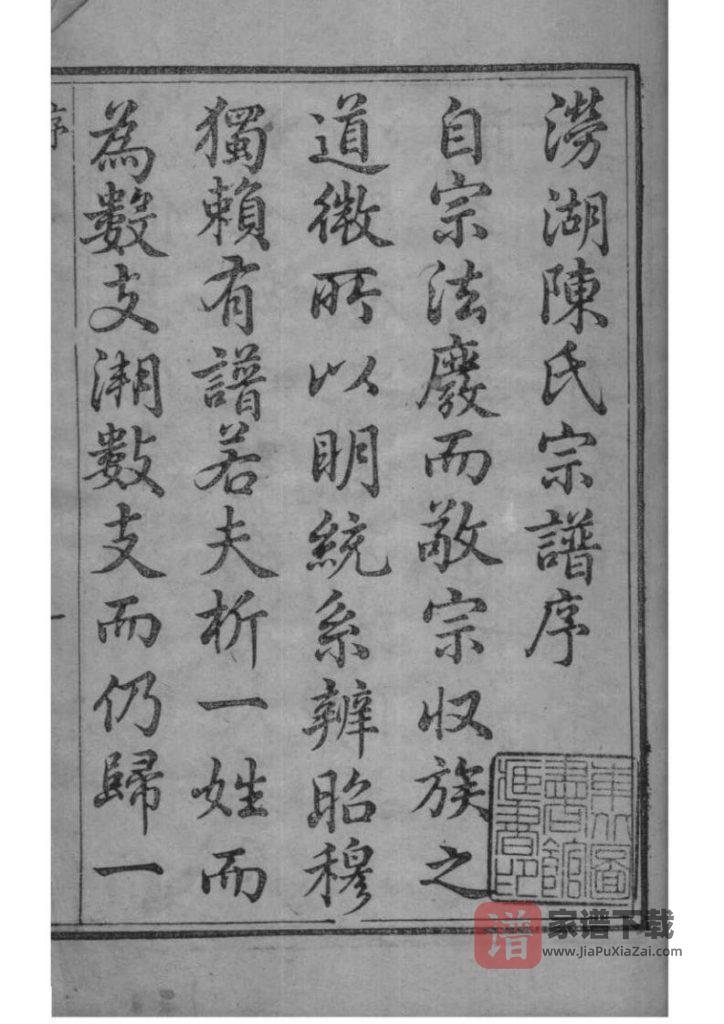 澇湖陳氏宗譜序
自宗法廢而敬宗収族之
道微所以明統系辨昭穆
獨賴有譜若夫析一姓而
為數支溯數支而仍歸一
序
一
東北圖
書館
所藏印
譜
家谱下载
www.JiaPuXiaZai.com